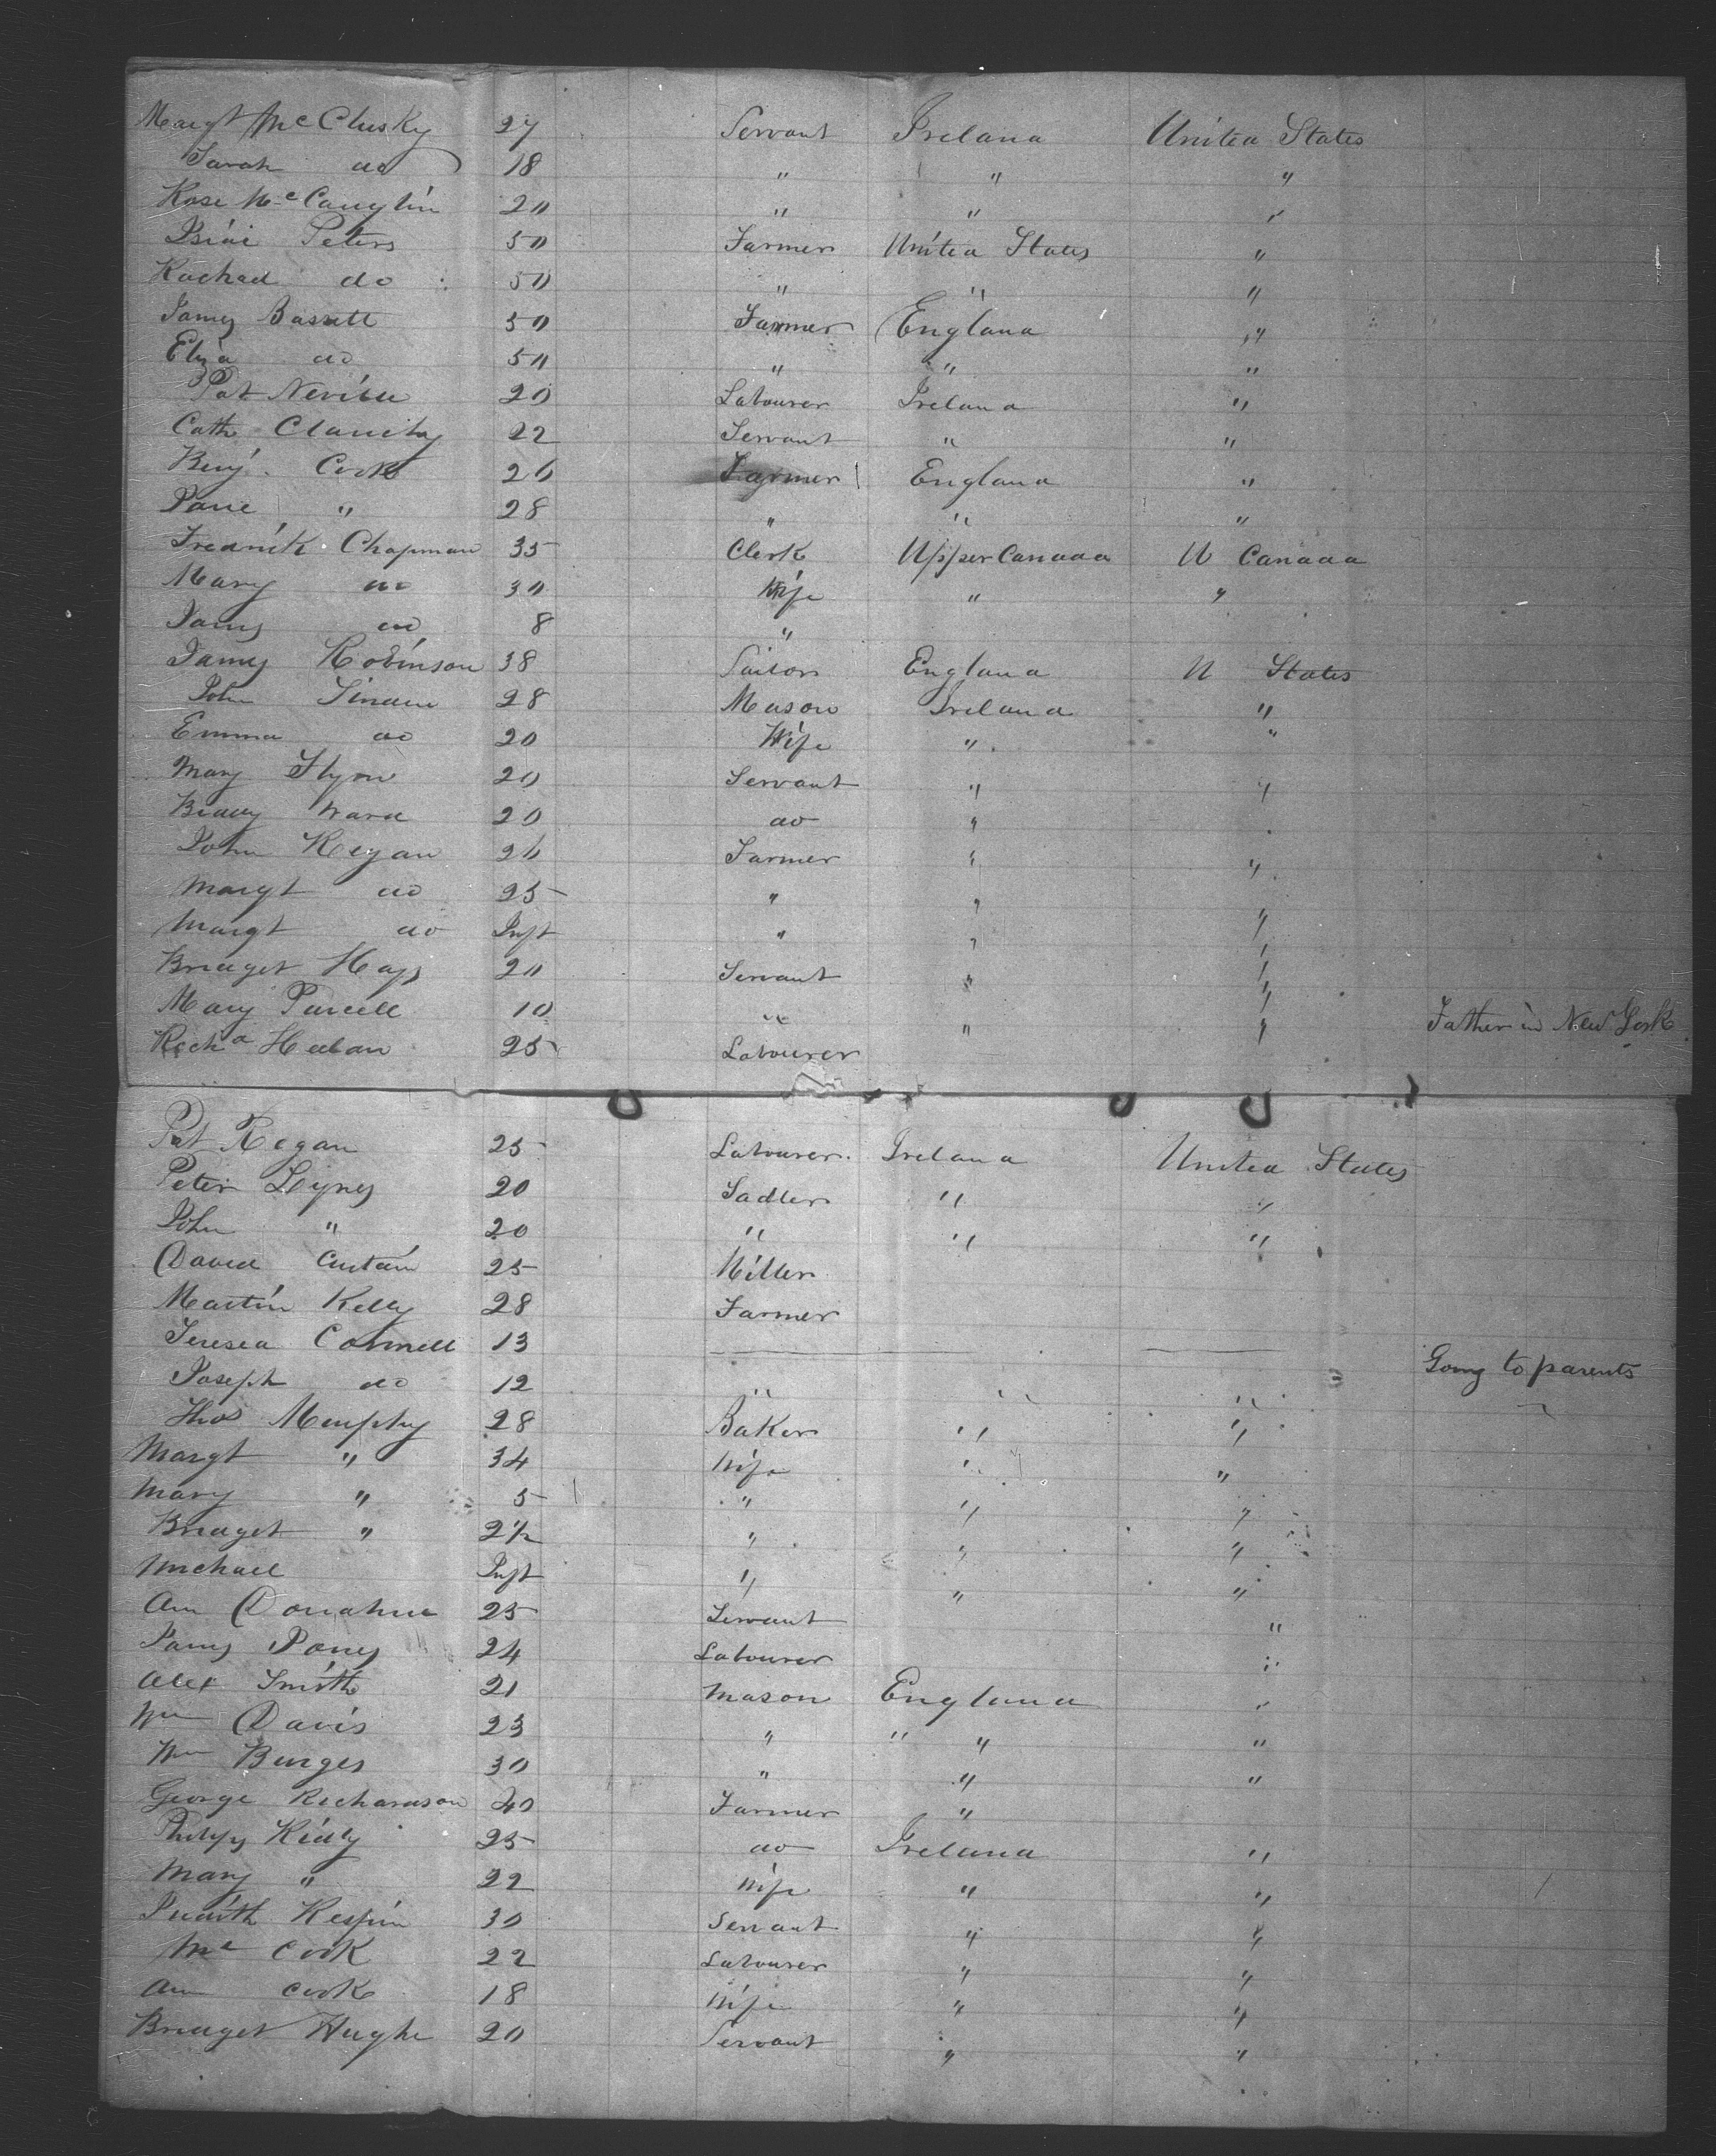 Margt McClusky 27 Servant Ireland United States
Sarah do 18 " " "
Rose McCauglin 20 " " "
Peters 50 Farmer United States "
Rachael do 50 " " "
James Bassett 50 Farmer England "
Eliza do 50 " " "
Pat Neville 20 Labourer Ireland "
Cath Clancy 22 Servant " "
Benj. Cook 26 Farmer England "
Jane " 28 " " "
Fredrick Chapman 35 Clerk Upper Canada U Canada
Mary do 30 Wife " "
James do 8 "
James Robinson 38 Sailor England U States
John 28 Mason Ireland "
Emma do 20 Wife " "
Mary Flynn 20 Servant " "
Biddy Ward 20 do "
John Regan 26 Farmer " "
Margt do 25 " " "
Margt do Inft " " "
Bridget Hays 20 Servant " "
Mary Purcell 10 " " " Father in New York
Richd 25 Labourer
Pat Regan 25 Labourer Ireland United States
Peter Lynes 20 Sadler " "
John " 20 " " "
David 25 Miller
Martin Kelly 28 Farmer
Teresea Connell 13 Going to parents
Joseph do 12 " " "
Thos Murphy 28 Baker " "
Margt " 34 Wife " "
Mary " 5 " " "
Bridget " 2½ " " "
Michael Inft " " "
Ann Donahue 25 Servant "
James Jones 24 Labourer "
Alex Smith 21 Mason England "
Wm Davis 23 " " " "
Wm Burges 30 " " "
George Richardson 40 Farmer "
Philip 25 do Ireland "
Mary " 22 Wife " "
Judith 30 Servant " "
Cook 22 Labourer " "
Ann Cook 18 Wife " "
Bridget Hughe 20 Servant " "